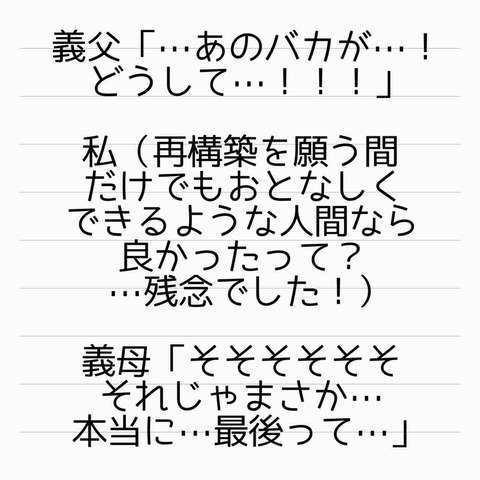 義父「…あのバカが…！
どうして…！！！」
私（再構築を願う間
だけでもおとなしく
できるような人間なら
良かったって？
…残念でした！）
義母「そそそそそそ
それじゃまさか…
本当に…最後って…」